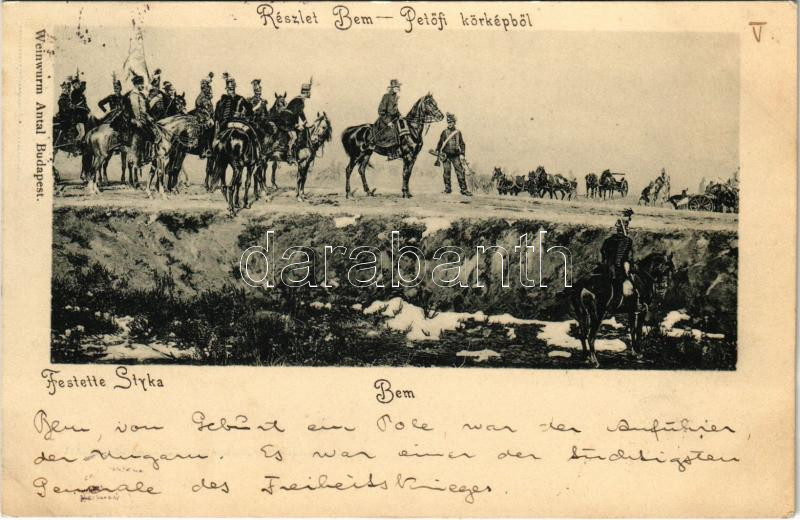 Részlet Bem — Petőfi körképből
V
Weinwurm Antal Budapest.
darabanth
Festette Styka
Bem
Bem, von Geburt ein Pole, war der Anführer,
der Ungarn. Es war einer der tüchtigsten
Generale des Freiheitskrieges